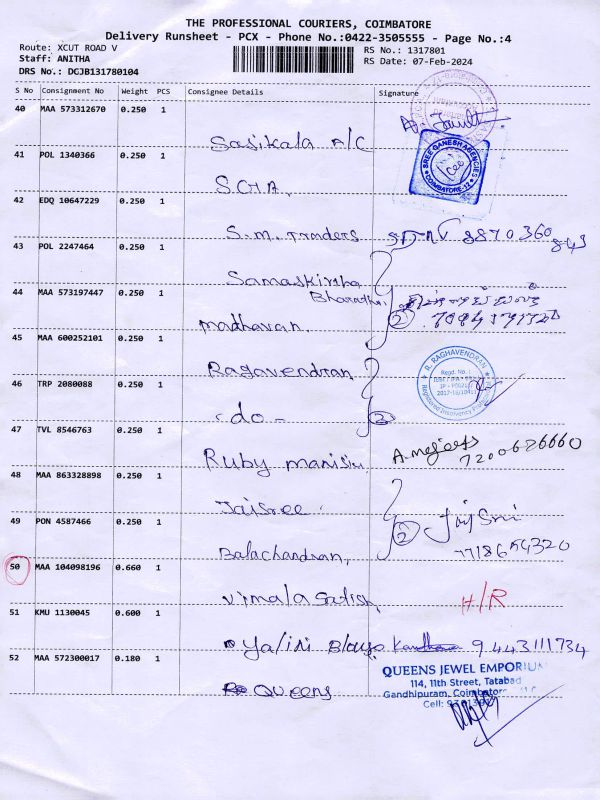 THE PROFESSIONAL COURIERS, COIMBATORE
Delivery Runsheet - PCX - Phone No.:0422-3505555 - Page No.:4
Route: XCUT ROAD V
RS No.: 1317801
Staff: ANITHA
RS Date: 07-Feb-2024
DRS No.: DGJB131780104
S No Consignment No Weight PCS Consignee Details Signature
40 MAA 573312670 0.250 1
Sasikala A/C
41 POL 1340366 0.250 1
SREE GANESH AGENCIES
COIMBATORE-12
S.G.A.
42 EDQ 10647229 0.250 1
S.M. Traders 8870360
843
43 POL 2247464 0.250 1
Samaskiritha
Bharathi
44 MAA 573197447 0.250 1
madhavan. 2
45 MAA 600252101 0.250 1
R. RAGHAVENDRAN
Regd. No. :
Registered Insolvency
Ragavendran
46 TRP 2080088 0.250 1
-do- 2
47 TVL 8546763 0.250 1
Ruby
7200686660
48 MAA 863328898 0.250 1
Jaisree. Jaisri
49 PON 4587466 0.250 1
2
Balachandran, 7718654320
50 MAA 104098196 0.660 1
Vimala Satish, H/R
51 KMU 1130045 0.600 1
Yalini 9443111734
52 MAA 572300017 0.180 1
QUEENS JEWEL EMPORIUM
114, 11th Street, Tatabad
Gandhipuram, Coimbatore
Cell:
Queens